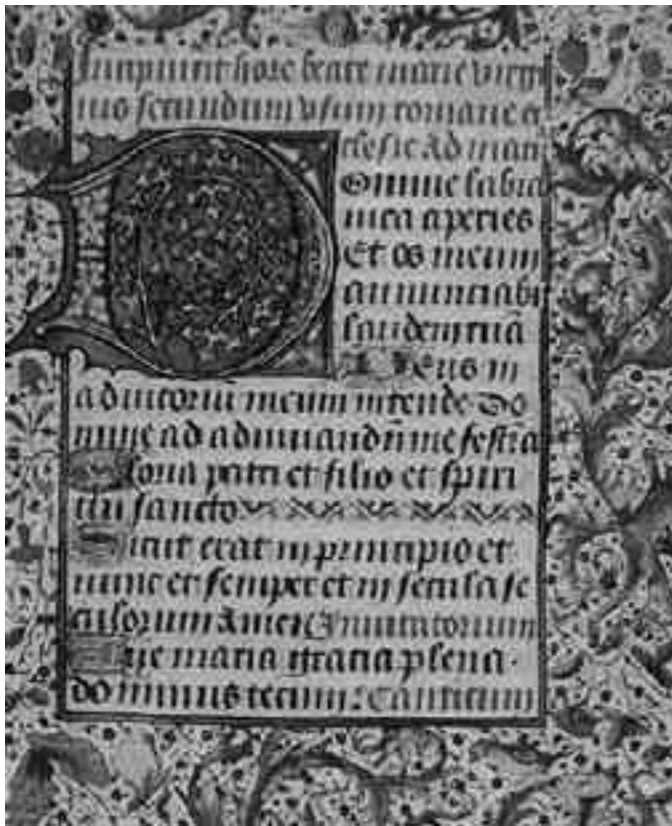 Incipiunt hore beate marie virgi
nis secundum usum romane ec
clesie Ad mati
Domine labia
mea aperies
Et os meum
annunciabi
laudem tuā
Deus in
adiutoriū meum intende Do
mine ad adiuvandū me festīa
Gloria patri et filio et spiri
tui sancto
Sicut erat in principio et
nunc et semper et in secula se
culorum Amen Invitatorium
Ave maria gratia plena.
dominus tecum: Canticum